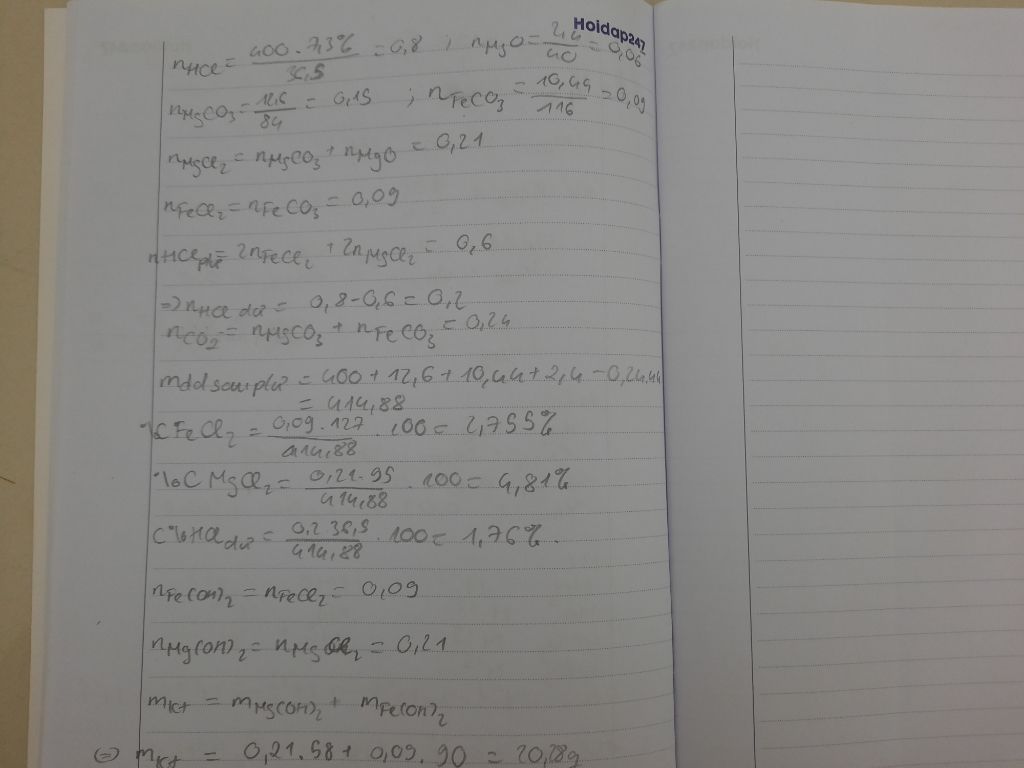 Hoidap247
nHCl = 400.7,3% / 36,5 = 0,8 ; nMgO = 2,4 / 40 = 0,06
nMgCO3 = 12,6 / 84 = 0,15 ; nFeCO3 = 10,44 / 116 = 0,09
nMgCl2 = nMgCO3 + nMgO = 0,21
nFeCl2 = nFeCO3 = 0,09
nHClpư = 2nFeCl2 + 2nMgCl2 = 0,6
=> nHCl dư = 0,8 - 0,6 = 0,2
nCO2 = nMgCO3 + nFeCO3 = 0,24
mdd sau pư = 400 + 12,6 + 10,44 + 2,4 - 0,24.44
= 414,88
%CFeCl2 = 0,09.127 / 414,88 . 100 = 2,755%
%C MgCl2 = 0,21.95 / 414,88 . 100 = 4,81%
C%HCl dư = 0,2.36,5 / 414,88 . 100 = 1,76%.
nFe(OH)2 = nFeCl2 = 0,09
nMg(OH)2 = nMgCl2 = 0,21
mKt = mMg(OH)2 + mFe(OH)2
(=) mKt = 0,21.58 + 0,09.90 = 20,28g